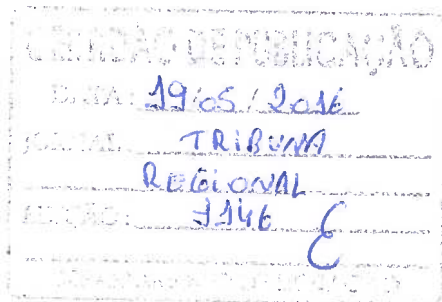 CERTIDÃO DE PUBLICAÇÃO
DATA: 19/05/2016
JORNAL: TRIBUNA
REGIONAL
EDIÇÃO: 1146